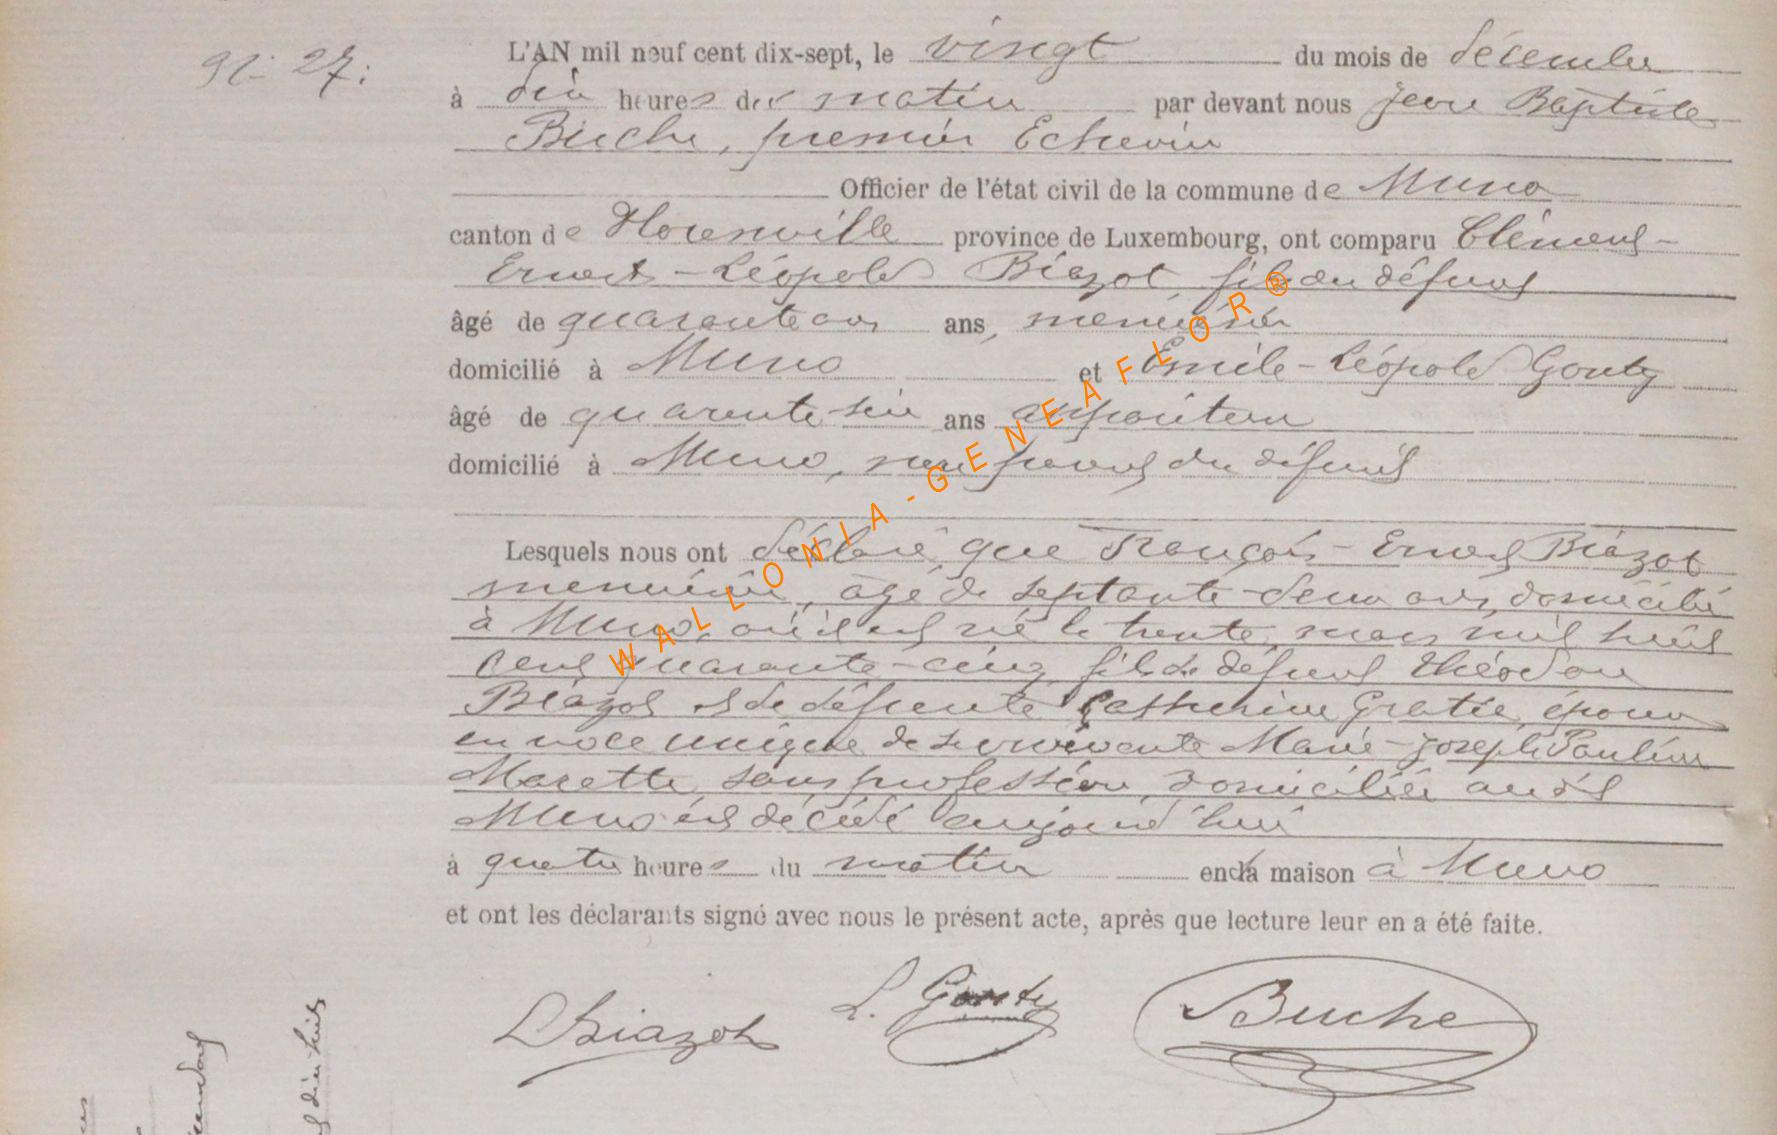 N° 27.
L'AN mil neuf cent dix-sept, le vingt du mois de décembre
à dix heures du matin par devant nous Jean Baptiste
Buche, premier Echevin
Officier de l'état civil de la commune de Muno
canton de Florenville province de Luxembourg, ont comparu Clément-
Ernest-Léopold Biazot, fils du défunt
âgé de quarante ans ans, menuisier
domicilié à Muno et Emile-Léopold Gouty
âgé de quarante-six ans
domicilié à Muno, non parent du défunt
Lesquels nous ont déclaré que François-Ernest Biazot
menuisier, âgé de septante-deux ans, domicilié
à Muno, où il est né le trente mars mil huit
cent quarante-cinq, fils de défunt Théodore
Biazot et de défunte Catherine Gratie, époux
en noce unique de survivante Marie-Joseph Pauline
Marette, sans profession, domiciliée audit
Muno est décédé aujourd'hui
à quatre heures du matin en la maison à Muno
et ont les déclarants signé avec nous le présent acte, après que lecture leur en a été faite.
L Biazot L. Gouty Buche
WALLONIA-GENEAFLOR®
dix-huit